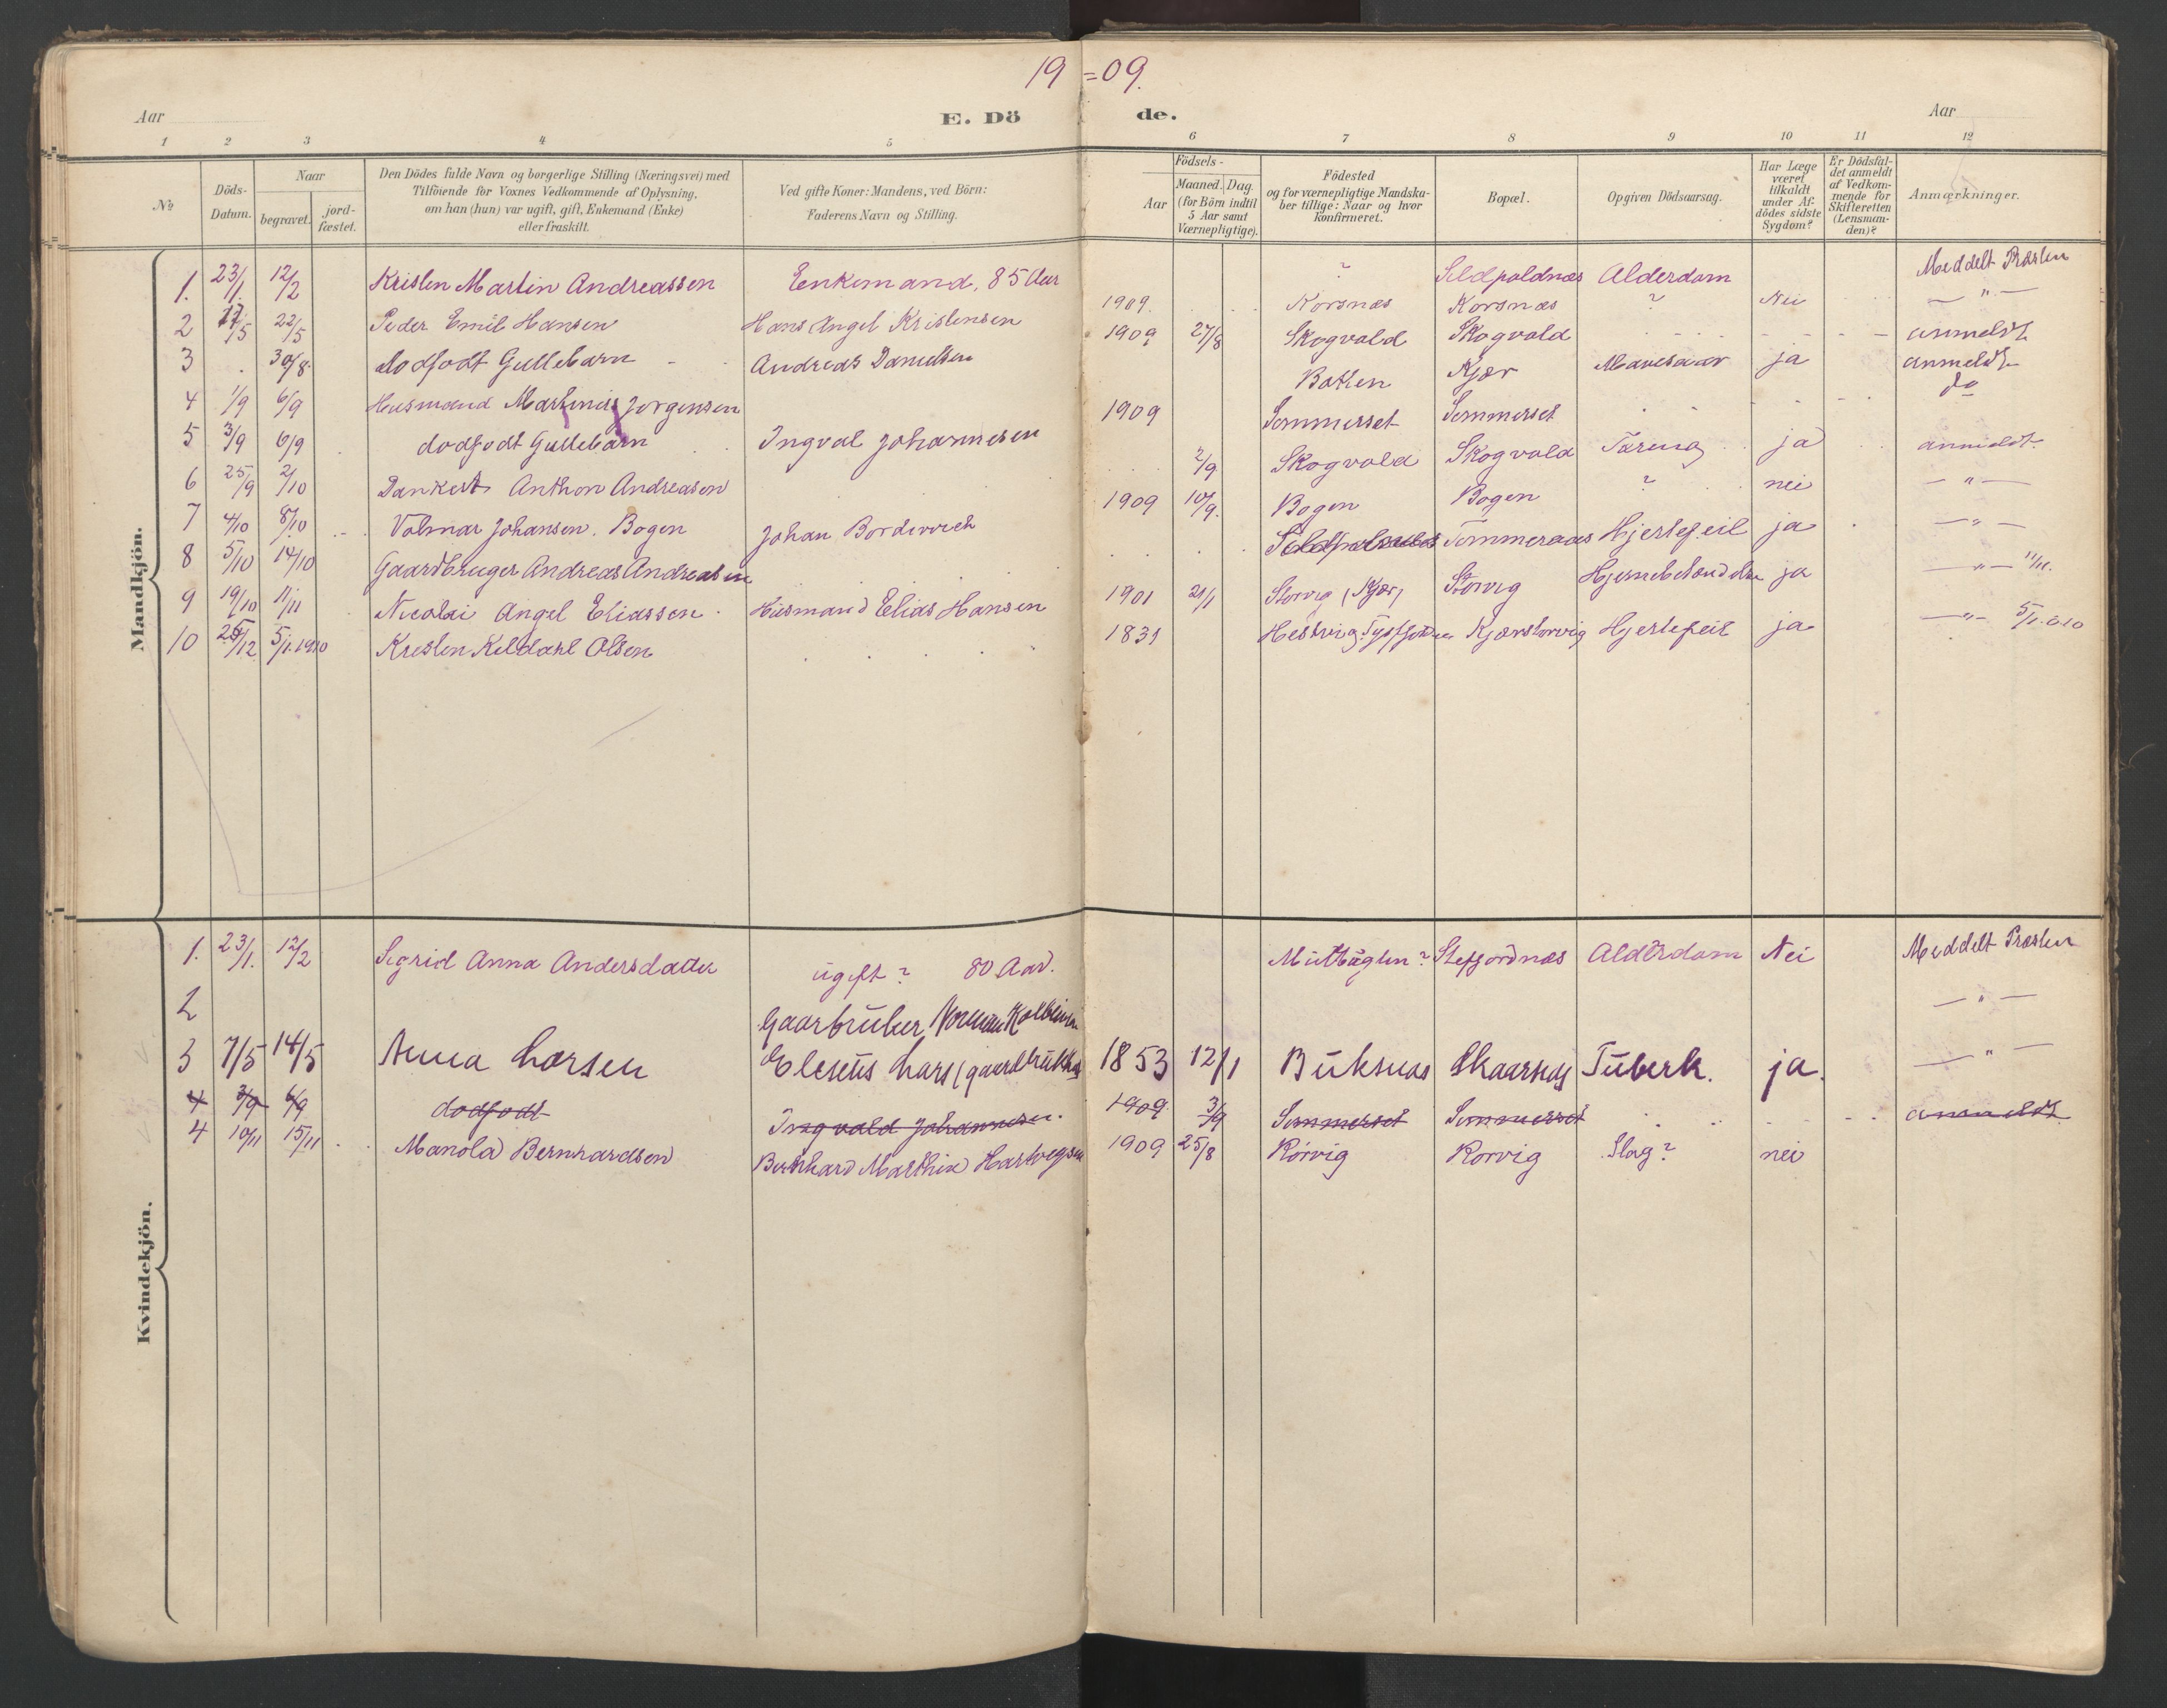 19=09.
Aar
E. Dö
de.
Aar
1 2 3 4 5 6 7 8 9 10 11 12
№
Döds-
Datum.
Naar
begravet.
jord-
fæstet.
Den Dödes fulde Navn og borgerlige Stilling (Næringsvei) med
Tilföiende for Voxnes Vedkommende af Oplysning,
om han (hun) var ugift, gift, Enkemand (Enke)
eller fraskilt.
Ved gifte Koner: Mandens, ved Börn:
Faderens Navn og Stilling.
Födsels-
Aar
Maaned. Dag.
(for Börn indtil
5 Aar samt
Værnepligtige).
Födested
og for værnepligtige Mandska-
ber tillige: Naar og hvor
konfirmeret.
Bopæl.
Opgiven Dödsaarsag.
Har Læge
været
tilkaldt
under Af-
dödes sidste
Sygdom?
Er Dödsfal-
det anmeldt
af Vedkom-
mende for
Skifteretten
(Lensman-
den)?
Anmærkninger.
Mandkjön.
1. 23/1. 12/2 Kristen Martin Andreassen Enkemand, 85 Aar ? Alderdom Meddelt Præsten
2 17/5 22/5 Peder Emil Hansen Hans Angel Kristensen 1909. Korsnæs Korsnæs ? Nei — " —
3 . 30/8 dodfodt Guttebarn Andreas Danielsen 1909 27/8 Skogvold Skogvold anmeldt
4 1/9 6/9 Husmand Martinus Jørgensen Botten Kjær Mavesaar ja anmeldt
5 3/9 6/9 dodfodt Guttebarn Ingval Johannesen 1909 Sommerset Sommerset do
6 25/9 2/10 Dankert Anthon Andreasen 2/9 Skogvold Skogvold Tæring ja anmeldt
7 4/10 8/10 Volmar Johansen. Bogen Johan 1909 10/9. Bogen Bogen ? nei — " —
8 5/10 14/10 Gaardbruger Andreas Andreasen Tømmeraas Hjertefeil ja — " —
9 19/10 11/11 Nicolai Angel Eliassen Husmand Elias Hansen 1901 21/1 Storvig (Kjær) Storvig Hjernebetændelse ja — " — 11/11.
10 25/12 5/1.1910 Kristen Keldahl Olsen 1831 Hestvig. Tysfjorden Kjærstorvig Hjertefeil ja — " — 5/1.010
Kvindekjön.
1. 23/1. 12/2 Sigrid Anna Andersdatter ugift? 80 Aar. Stefjordnæs Alderdom Nei Meddelt Præsten
2 — " —
Gaarbruker Norman
3 7/5 14/5 Anna Larsen Eleseus Lars (gaardbruker 1853 12/1 Buksnæs Skaarnes Tuberk. ja. — " —
4 3/9 6/9 dodfodt Ingvald Johannesen. 1909. 3/9 Sommerset Sommerset anmeldt
4 10/11 15/11 Manola Bernhardsen Bernhard Marthin Hartvigsen 1909 25/8 Korvig Korvig Slag? nei